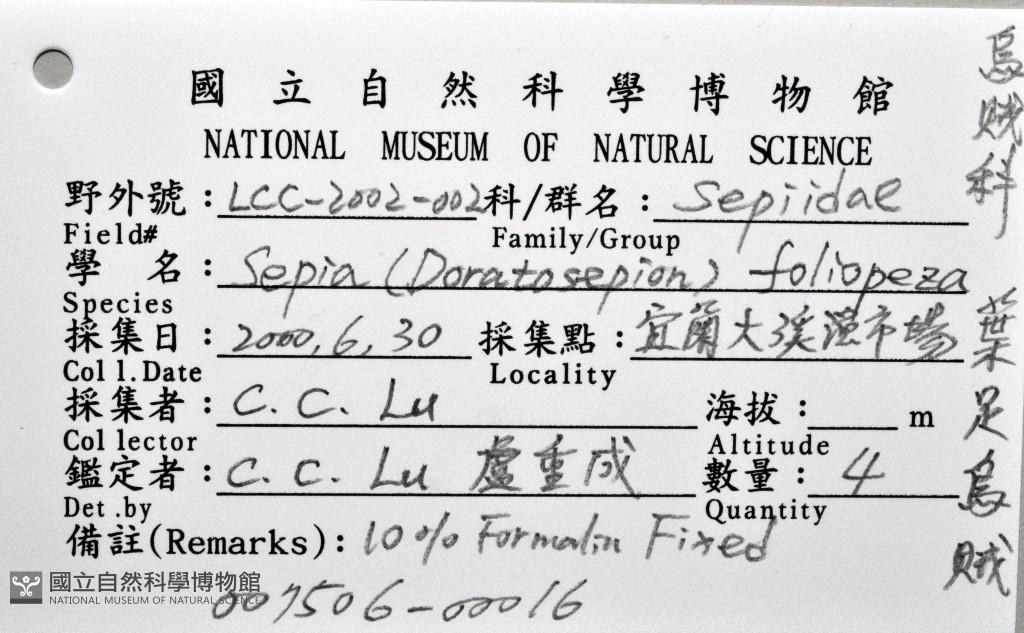 國立自然科學博物館
NATIONAL MUSEUM OF NATURAL SCIENCE
野外號：LCC-2002-002 科/群名：Sepiidae
Field# Family/Group
學名：Sepia (Doratosepion) foliopeza
Species
採集日：2000, 6, 30 採集點：宜蘭大溪漁市場
Coll.Date Locality
採集者：C. C. Lu 海拔： m
Collector Altitude
鑑定者：C. C. Lu 盧重成 數量：4
Det.by Quantity
備註(Remarks)：10% Formalin Fixed
007506-00016
烏賊科
葉足烏賊
國立自然科學博物館
NATIONAL MUSEUM OF NATURAL SCIENCE